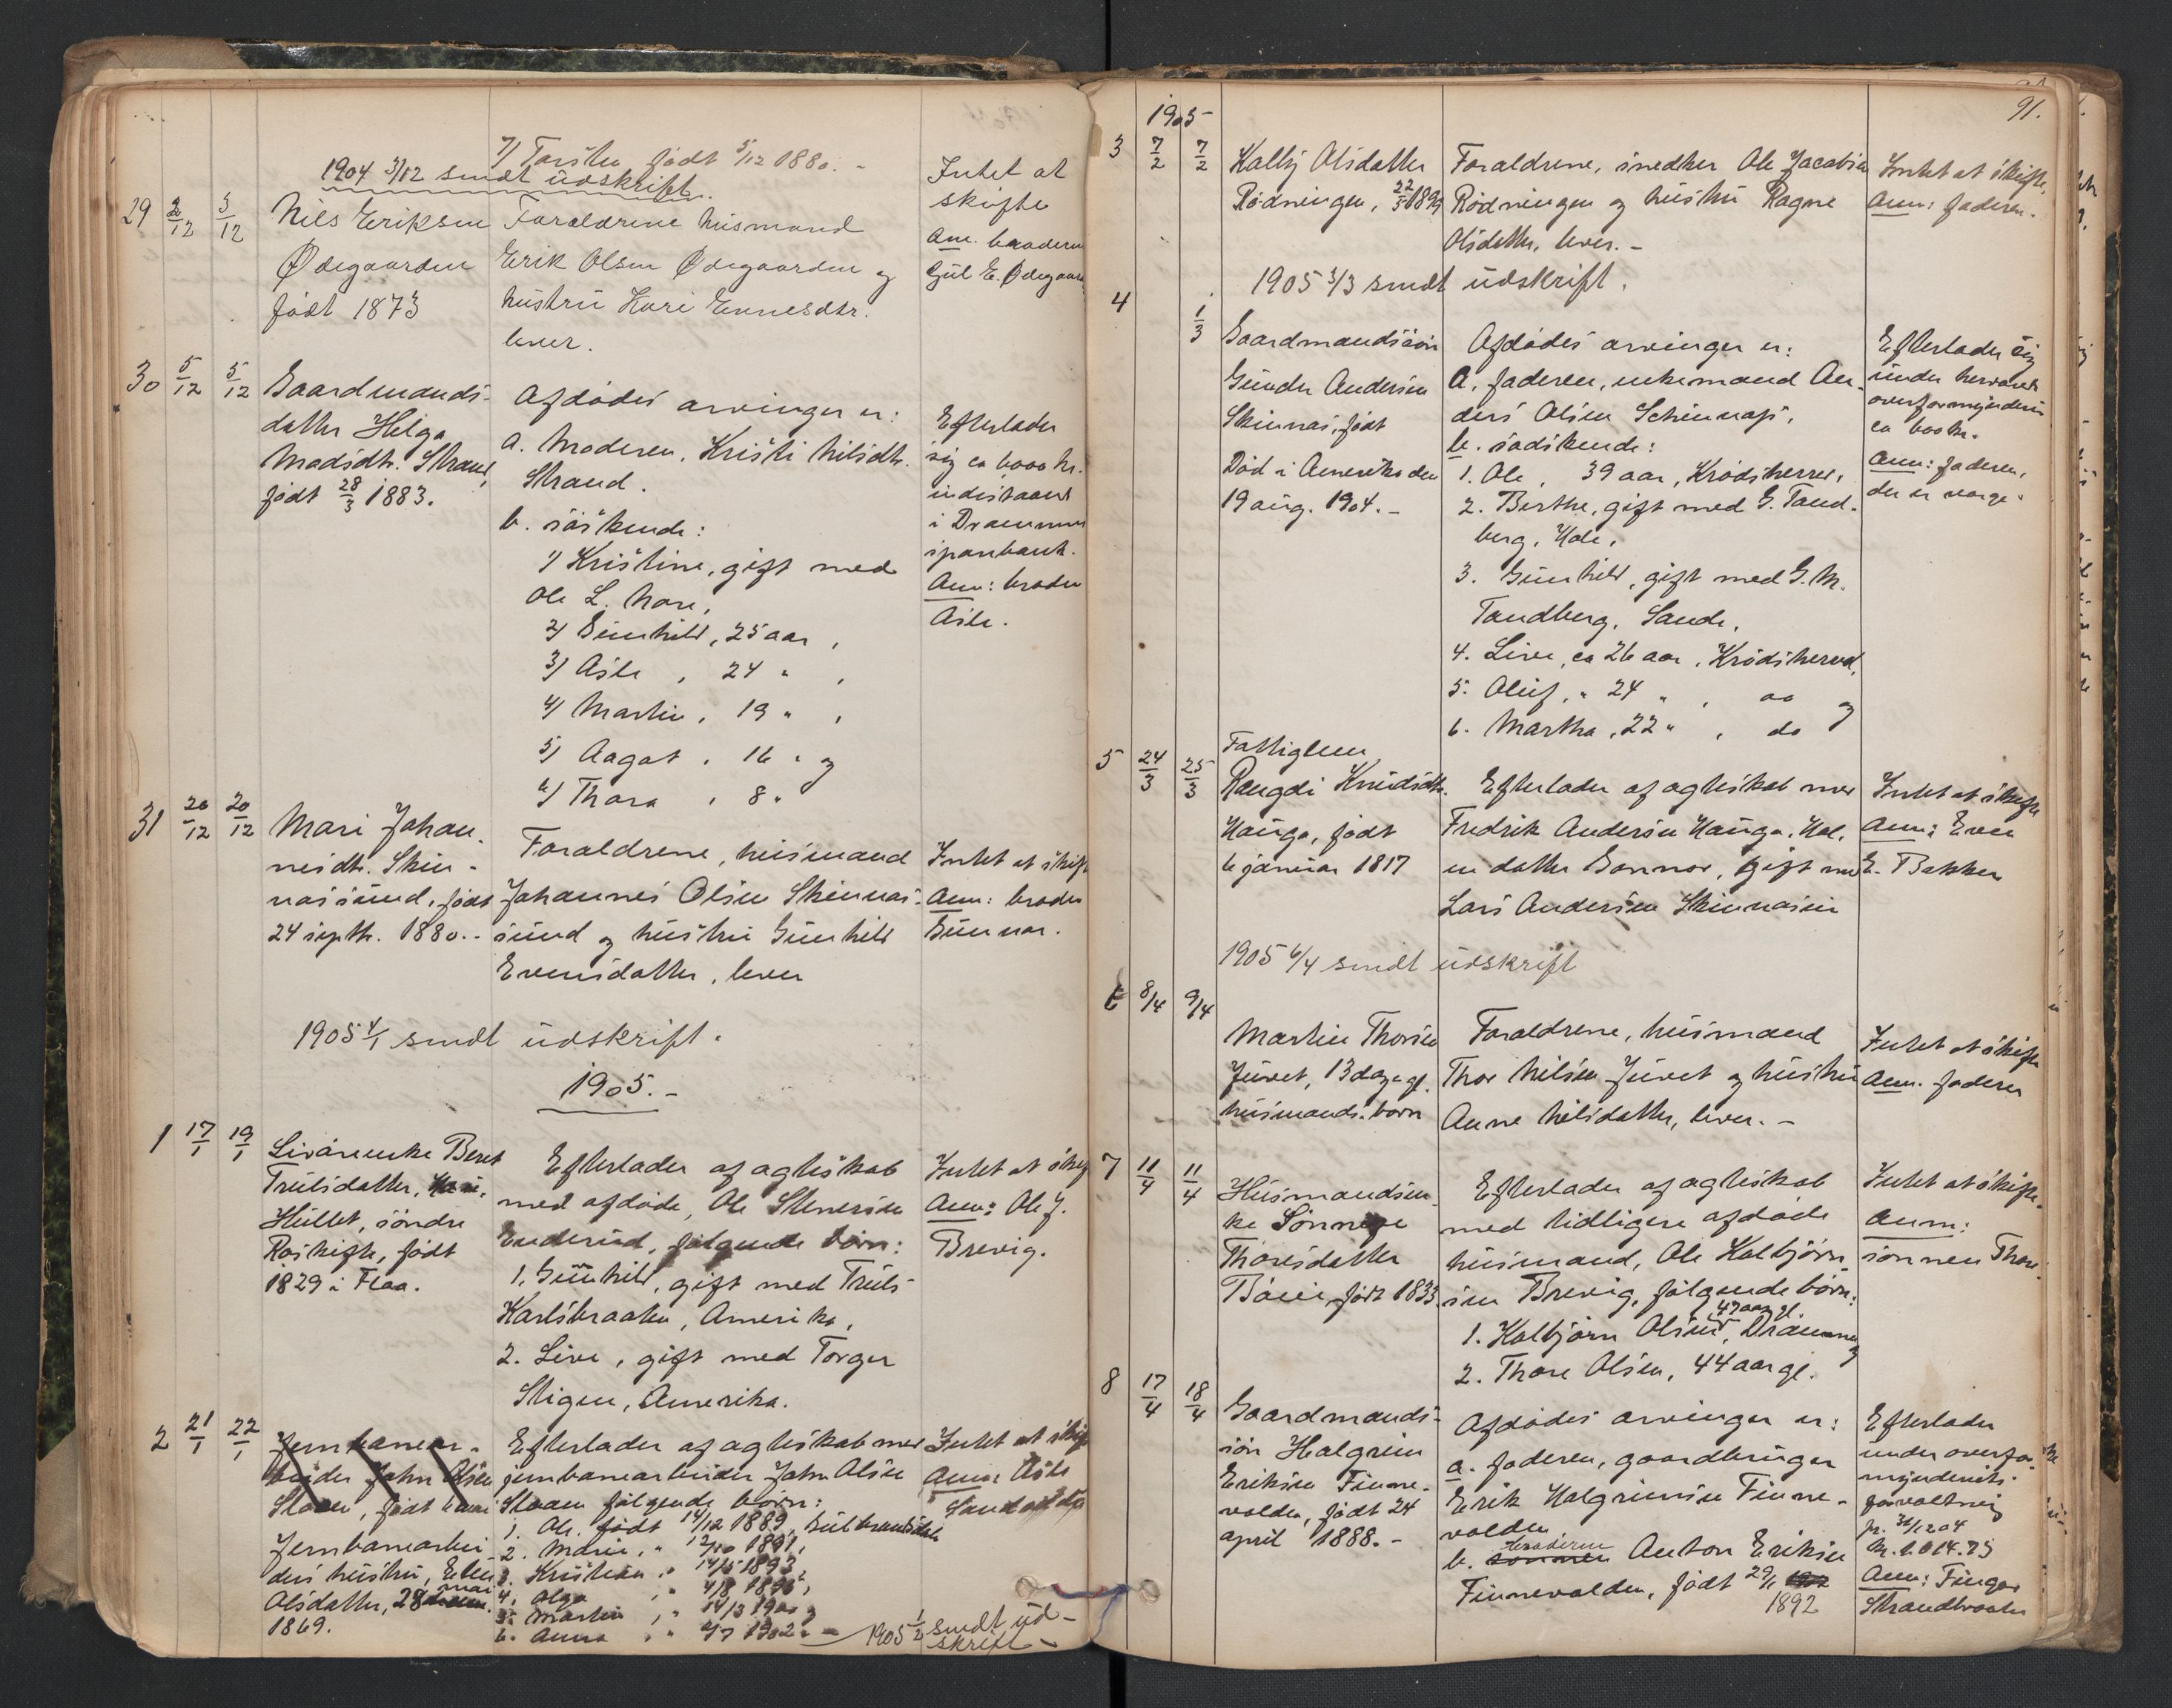 7) Torsten født 5/12 1880. -
1904 3/12 sendt udskrift.
29 2/12 3/12 Nils Eriksen
Ødegaarden
født 1873
Forældrene husmand
Erik Olsen Ødegaarden og
hustru Kari
lever.
Intet at
skifte
Anm. broderen
Gul E. Ødegaard
30 5/12 5/12 Gaardmands-
datter Helga
Madsdtr. Strand,
født 28/3 1883.
Afdødes arvinger er:
a. Moderen, Kristi Nilsdtr.
Strand.
b. søskende:
1) Kristine, gift med
Ole L. Nore,
2) Gunhild, 25 aar,
3) Asle, 24 " ,
4) Martin, 19 " ,
5) Aagot, 16 " og
6) Thora, 8 "
Efterlader
sig ca 6000 kr.
indestaaende
i Drammens
sparebank.
Anm: broder
Asle.
31 20/12 20/12 Mari Johan-
nesdtr. Skin-
næssund, født
24 septbr. 1880.-
Forældrene, husmand
Johannes Olsen Skinnes-
sund og hustru Gunhild
Evensdatter, lever
Intet at skifte
Anm: broder
Gunnar.
1905 4/1 sendt udskrift.
1905.-
1 17/1 19/1 Livøreenke Beret
Trulsdatter,
Hullet, søndre
født
1829 i Flaa.
Efterlader af ægteskab
med afdøde, Ole Stenersen
Enderud, følgende børn:
1. Gunhild, gift med Truls
Karlsbraaten, Amerika,
2. Live, gift med Torger
Stigen, Amerika.
Intet at skifte
Anm: Ole J.
Brevig.
2 21/1 22/1 Jernbanear-
beider John Olsen
Sloan, født
Jernbanearbei-
ders hustru, Ellen
Olsdatter, 28 mai
1869.
Efterlader af ægteskab med
jernbanearbeider John Olsen
Sloan følgende børn:
1. Ole, født 14/12 1889,
2. Marie, " 12/10 1891,
3. Kristian, " 14/5 1893,
4. Olga, " 4/8 1896,
5. Martin, " 14/3 1900 og
6. Anna, " 2/7 1902. -
Intet at skifte
Anm: Asle
1905 1/2 sendt ud-
skrift -
91.
1905
3 7/2 7/2 Kalbj Olsdatter
Rødningen, 22/5 1899
Forældrene, snedker Ole Jacobsen
Rødningen og hustru Ragne
Olsdatter, lever. -
Intet at skifte.
Anm: faderen.
1905 3/3 sendt udskrift.
4 1/3 Gaardmandssøn
Gunder Andersen
Skinnes, født
Død i Amerika den
19 aug. 1904. -
Afdødes arvinger er:
a. faderen, enkemand An-
ders Olsen Schinnæs,
b. sødskende:
1. Ole, 39 aar, Krødsherred,
2. Berthe, gift med G. Tand-
berg, Hole,
3. Gunhild, gift med G. M.
Tandberg, Sande,
4. Live, ca 26 aar, Krødsherred,
5. Oluf, " 24 " , do og
6. Martha, 22 " , do
Efterlader sig
under herværende
overformynderi
ca 600 kr.
Anm: faderen,
der er verge.
5 24/3 25/3 Fattiglem
Rangdi Knudsdtr.
Hauga, født
6 januar 1817
Efterlader af ægteskab med
Fredrik Andersen Hauga, Hol,
en datter Gonnor, gift med
Lars Andersen Skinnesein
Intet at skifte
Anm: Even
E. Bakken
1905 6/4 sendt udskrift
6 8/4 9/4
Martin Thorsen
Juvet, 13 dage gl.
husmands-barn
Forældrene, husmand
Thor Nilsen Juvet og hustru
Anne Nilsdatter, lever. -
Intet at skifte
Anm. faderen
7 11/4 11/4 Husmandsen-
ke Sønneve
Thoresdatter
født 1833
Efterlader af ægteskab
med tidligere afdøde
husmand, Ole Kolbjørn-
sen Brevig, følgende børn:
1. Kolbjørn Olsen, 47 aar gl., Drammen og
2. Thore Olsen, 44 aar gl.
Intet at skifte.
Anm:
sønnen Thore.
8 17/4 18/4 Gaardmands-
søn Halgrim
Eriksen Finne-
volden, født 24
april 1888. -
Afdødes arvinger er:
a. faderen, gaardbruger
Erik Halgrimsen Finne-
volden
b. sønnen broderen Anton Eriksen
Finnevolden, født 29/1
1892
Efterlader
under overfor-
mynderiets
forvaltning
pr. 31/12 04
kr. 1.014.75
Anm: Fingar
Strandbraaten